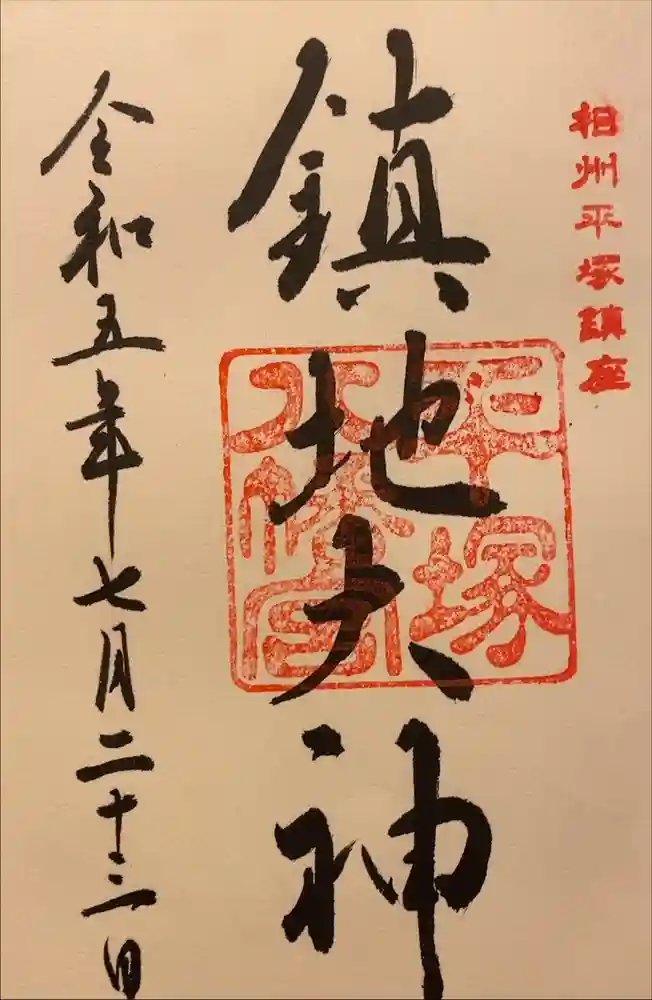 相州平塚鎮座
鎮地大神
平塚八幡宮
令和五年七月二十二日